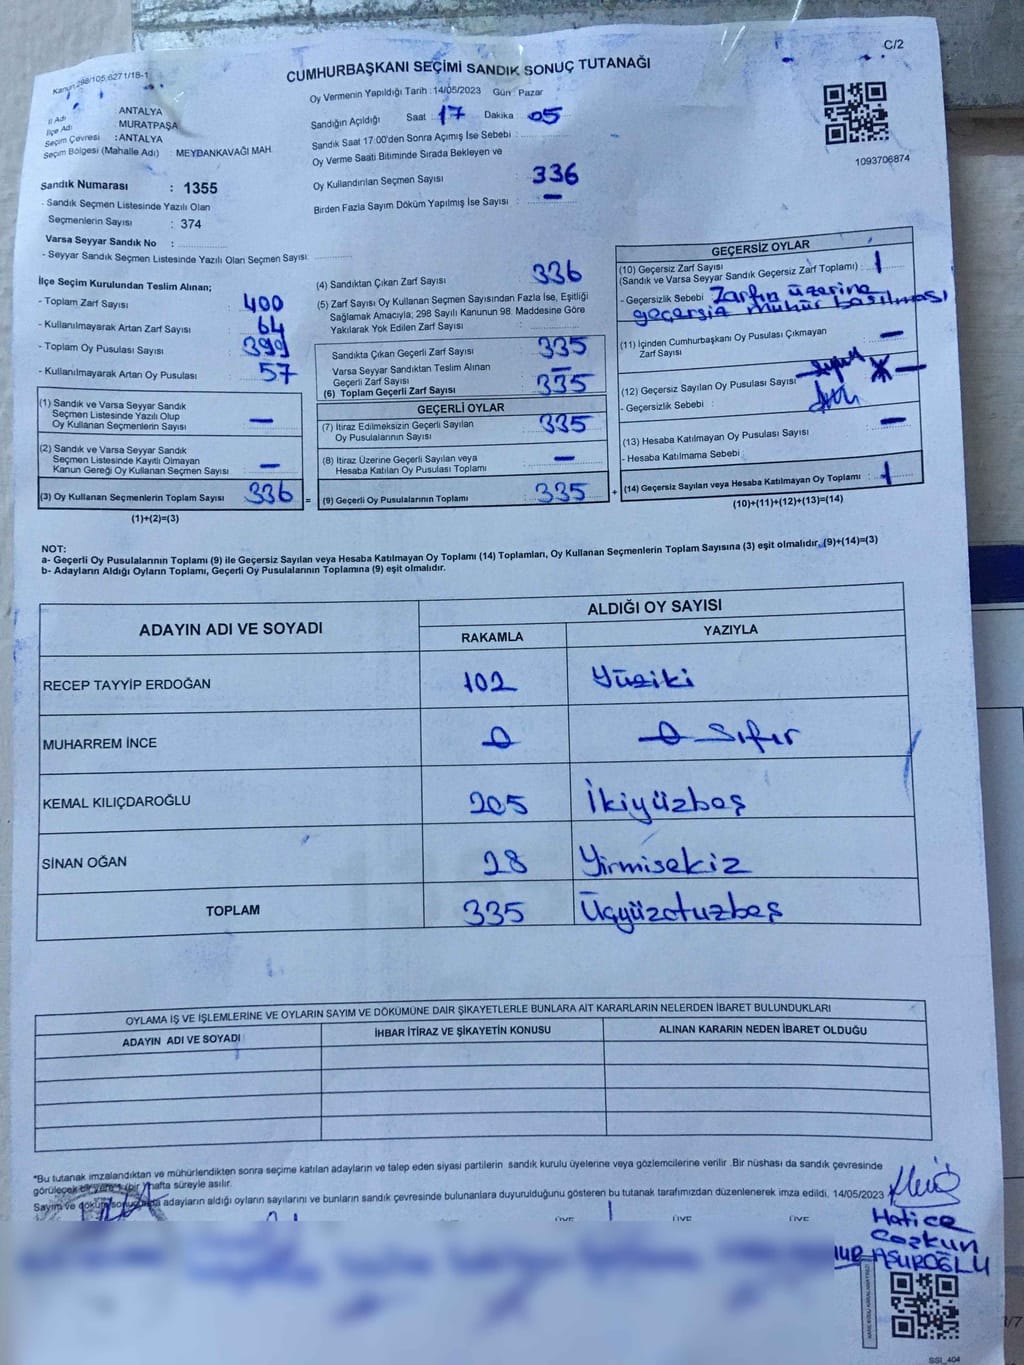 C/2
Kanun 298/105 6271/18-1
CUMHURBAŞKANI SEÇİMİ SANDIK SONUÇ TUTANAĞI
İl Adı ANTALYA
İlçe Adı MURATPAŞA
Seçim Çevresi : ANTALYA
Seçim Bölgesi (Mahalle Adı) MEYDANKAVAĞI MAH.
Oy Vermenin Yapıldığı Tarih : 14/05/2023 Gün : Pazar
Sandığın Açıldığı Saat : 17 Dakika : 05
Sandık Saat 17:00'den Sonra Açımış İse Sebebi :
Oy Verme Saati Bitiminde Sırada Bekleyen ve
Oy Kullandırılan Seçmen Sayısı : 336
Birden Fazla Sayım Döküm Yapılmış İse Sayısı : —
1093706874
Sandık Numarası : 1355
- Sandık Seçmen Listesinde Yazılı Olan
Seçmenlerin Sayısı : 374
Varsa Seyyar Sandık No :
- Seyyar Sandık Seçmen Listesinde Yazılı Olan Seçmen Sayısı:
İlçe Seçim Kurulundan Teslim Alınan;
- Toplam Zarf Sayısı : 400
- Kullanılmayarak Artan Zarf Sayısı : 64
- Toplam Oy Pusulası Sayısı : 399
- Kullanılmayarak Artan Oy Pusulası : 57
(1) Sandık ve Varsa Seyyar Sandık
Seçmen Listesinde Yazılı Olup
Oy Kullanan Seçmenlerin Sayısı —
(2) Sandık ve Varsa Seyyar Sandık
Seçmen Listesinde Kayıtlı Olmayan
Kanun Gereği Oy Kullanan Seçmen Sayısı —
(3) Oy Kullanan Seçmenlerin Toplam Sayısı 336 =
(1)+(2)=(3)
(4) Sandıktan Çıkan Zarf Sayısı : 336
(5) Zarf Sayısı Oy Kullanan Seçmen Sayısından Fazla İse, Eşitliği
Sağlamak Amacıyla; 298 Sayılı Kanunun 98. Maddesine Göre
Yakılarak Yok Edilen Zarf Sayısı :
Sandıkta Çıkan Geçerli Zarf Sayısı : 335
Varsa Seyyar Sandıktan Teslim Alınan
Geçerli Zarf Sayısı : —
(6) Toplam Geçerli Zarf Sayısı : 335
GEÇERLİ OYLAR
(7) İtiraz Edilmeksizin Geçerli Sayılan
Oy Pusulalarının Sayısı : 335
(8) İtiraz Üzerine Geçerli Sayılan veya
Hesaba Katılan Oy Pusulası Toplamı : —
(9) Geçerli Oy Pusulalarının Toplamı : 335 +
GEÇERSİZ OYLAR
(10) Geçersiz Zarf Sayısı
(Sandık ve Varsa Seyyar Sandık Geçersiz Zarf Toplamı) : 1
- Geçersizlik Sebebi : Zarfın üzerine
geçersiz mühür basılması
(11) İçinden Cumhurbaşkanı Oy Pusulası Çıkmayan
Zarf Sayısı —
(12) Geçersiz Sayılan Oy Pusulası Sayısı : —
- Geçersizlik Sebebi :
(13) Hesaba Katılmayan Oy Pusulası Sayısı : —
- Hesaba Katılmama Sebebi :
(14) Geçersiz Sayılan veya Hesaba Katılmayan Oy Toplamı : 1
(10)+(11)+(12)+(13)=(14)
NOT:
a- Geçerli Oy Pusulalarının Toplamı (9) ile Geçersiz Sayılan veya Hesaba Katılmayan Oy Toplamı (14) Toplamları, Oy Kullanan Seçmenlerin Toplam Sayısına (3) eşit olmalıdır. (9)+(14)=(3)
b- Adayların Aldığı Oyların Toplamı, Geçerli Oy Pusulalarının Toplamına (9) eşit olmalıdır.
ADAYIN ADI VE SOYADI ALDIĞI OY SAYISI
RAKAMLA YAZIYLA
RECEP TAYYİP ERDOĞAN 102 Yüziki
MUHARREM İNCE 0 0 Sıfır
KEMAL KILIÇDAROĞLU 205 İkiyüzbeş
SİNAN OĞAN 28 Yirmisekiz
TOPLAM 335 Üçyüzotuzbeş
OYLAMA İŞ VE İŞLEMLERİNE VE OYLARIN SAYIM VE DÖKÜMÜNE DAİR ŞİKAYETLERLE BUNLARA AİT KARARLARIN NELERDEN İBARET BULUNDUKLARI
ADAYIN ADI VE SOYADI İHBAR İTİRAZ VE ŞİKAYETİN KONUSU ALINAN KARARIN NEDEN İBARET OLDUĞU
*Bu tutanak imzalandıktan ve mühürlendikten sonra seçime katılan adayların ve talep eden siyasi partilerin sandık kurulu üyelerine veya gözlemcilerine verilir .Bir nüshası da sandık çevresinde
görülecek bir yere 1 (bir) hafta süreyle asılır.
Sayım ve döküm sonucunda adayların aldığı oyların sayılarını ve bunların sandık çevresinde bulunanlara duyurulduğunu gösteren bu tutanak tarafımızdan düzenlenerek imza edildi. 14/05/2023
ÜYE ÜYE ÜYE
Hatice
Coşkun
AŞUROĞLU
SSI_404
1/7